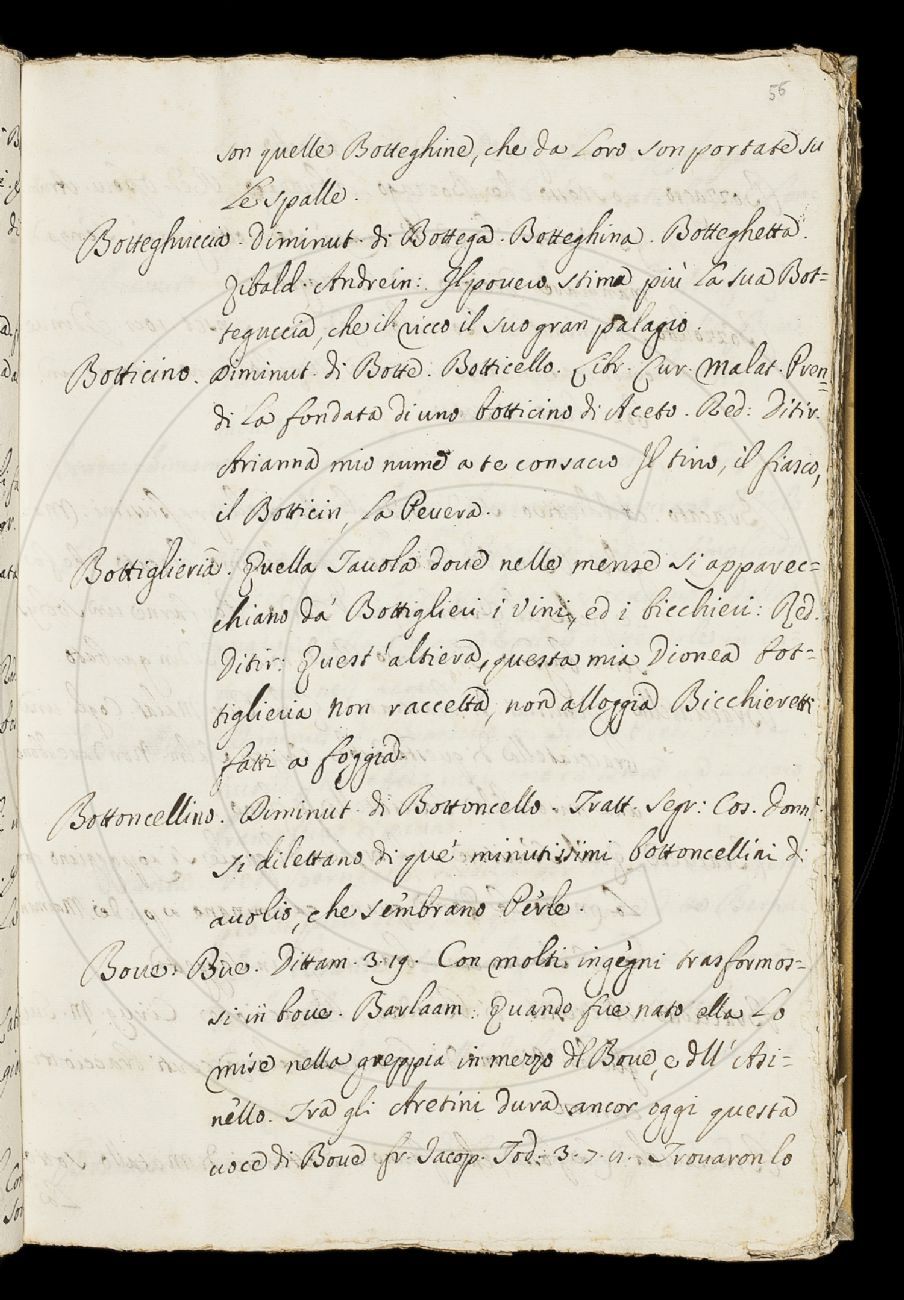 56
son quelle Botteghine, che da Loro son portate su
Le spalle.
Botteghuccia. Diminut. di Bottega. Botteghina. Botteghetta.
Zibald. Andrein: Il povero stima più la sua Bot=
teguccia, che il ricco il suo gran palagio.
Botticino. Diminut. di Botte. Botticello. Libr. Cur. Malat. Pren=
di la fondata di uno botticino di Aceto. Red: Ditir.
Arianna mio nume a te consacro Il tino, il fiasco,
il Botticin, la Pevera.
Bottiglieria. Quella Tavola dove nelle mense si apparec=
chiano da' Bottiglieri i Vini, ed i bicchieri: Red.
Ditir: Quest'altiera, questa mia Dionea bot=
tiglieria non raccetta, non alloggia Bicchieretti
fatti a foggia.
Bottoncellino. Diminut. di Bottoncello. Tratt. Segr: Cos. Donn.
si dilettano di que' minutissimi bottoncellini di
avolio, che sembrano Perle.
Bove. Bue. Dittam. 3. 19. Con molti ingegni trasformos=
si in bove. Barlaam: Quando fue nato ella Lo
mise nella greppia in mezzo dl Bove, e dll' Asi=
nello. Tra gli Aretini dura ancor oggi questa
voce di Bove fr. Jacop. Tod: 3. 7. 11. Trovaronlo